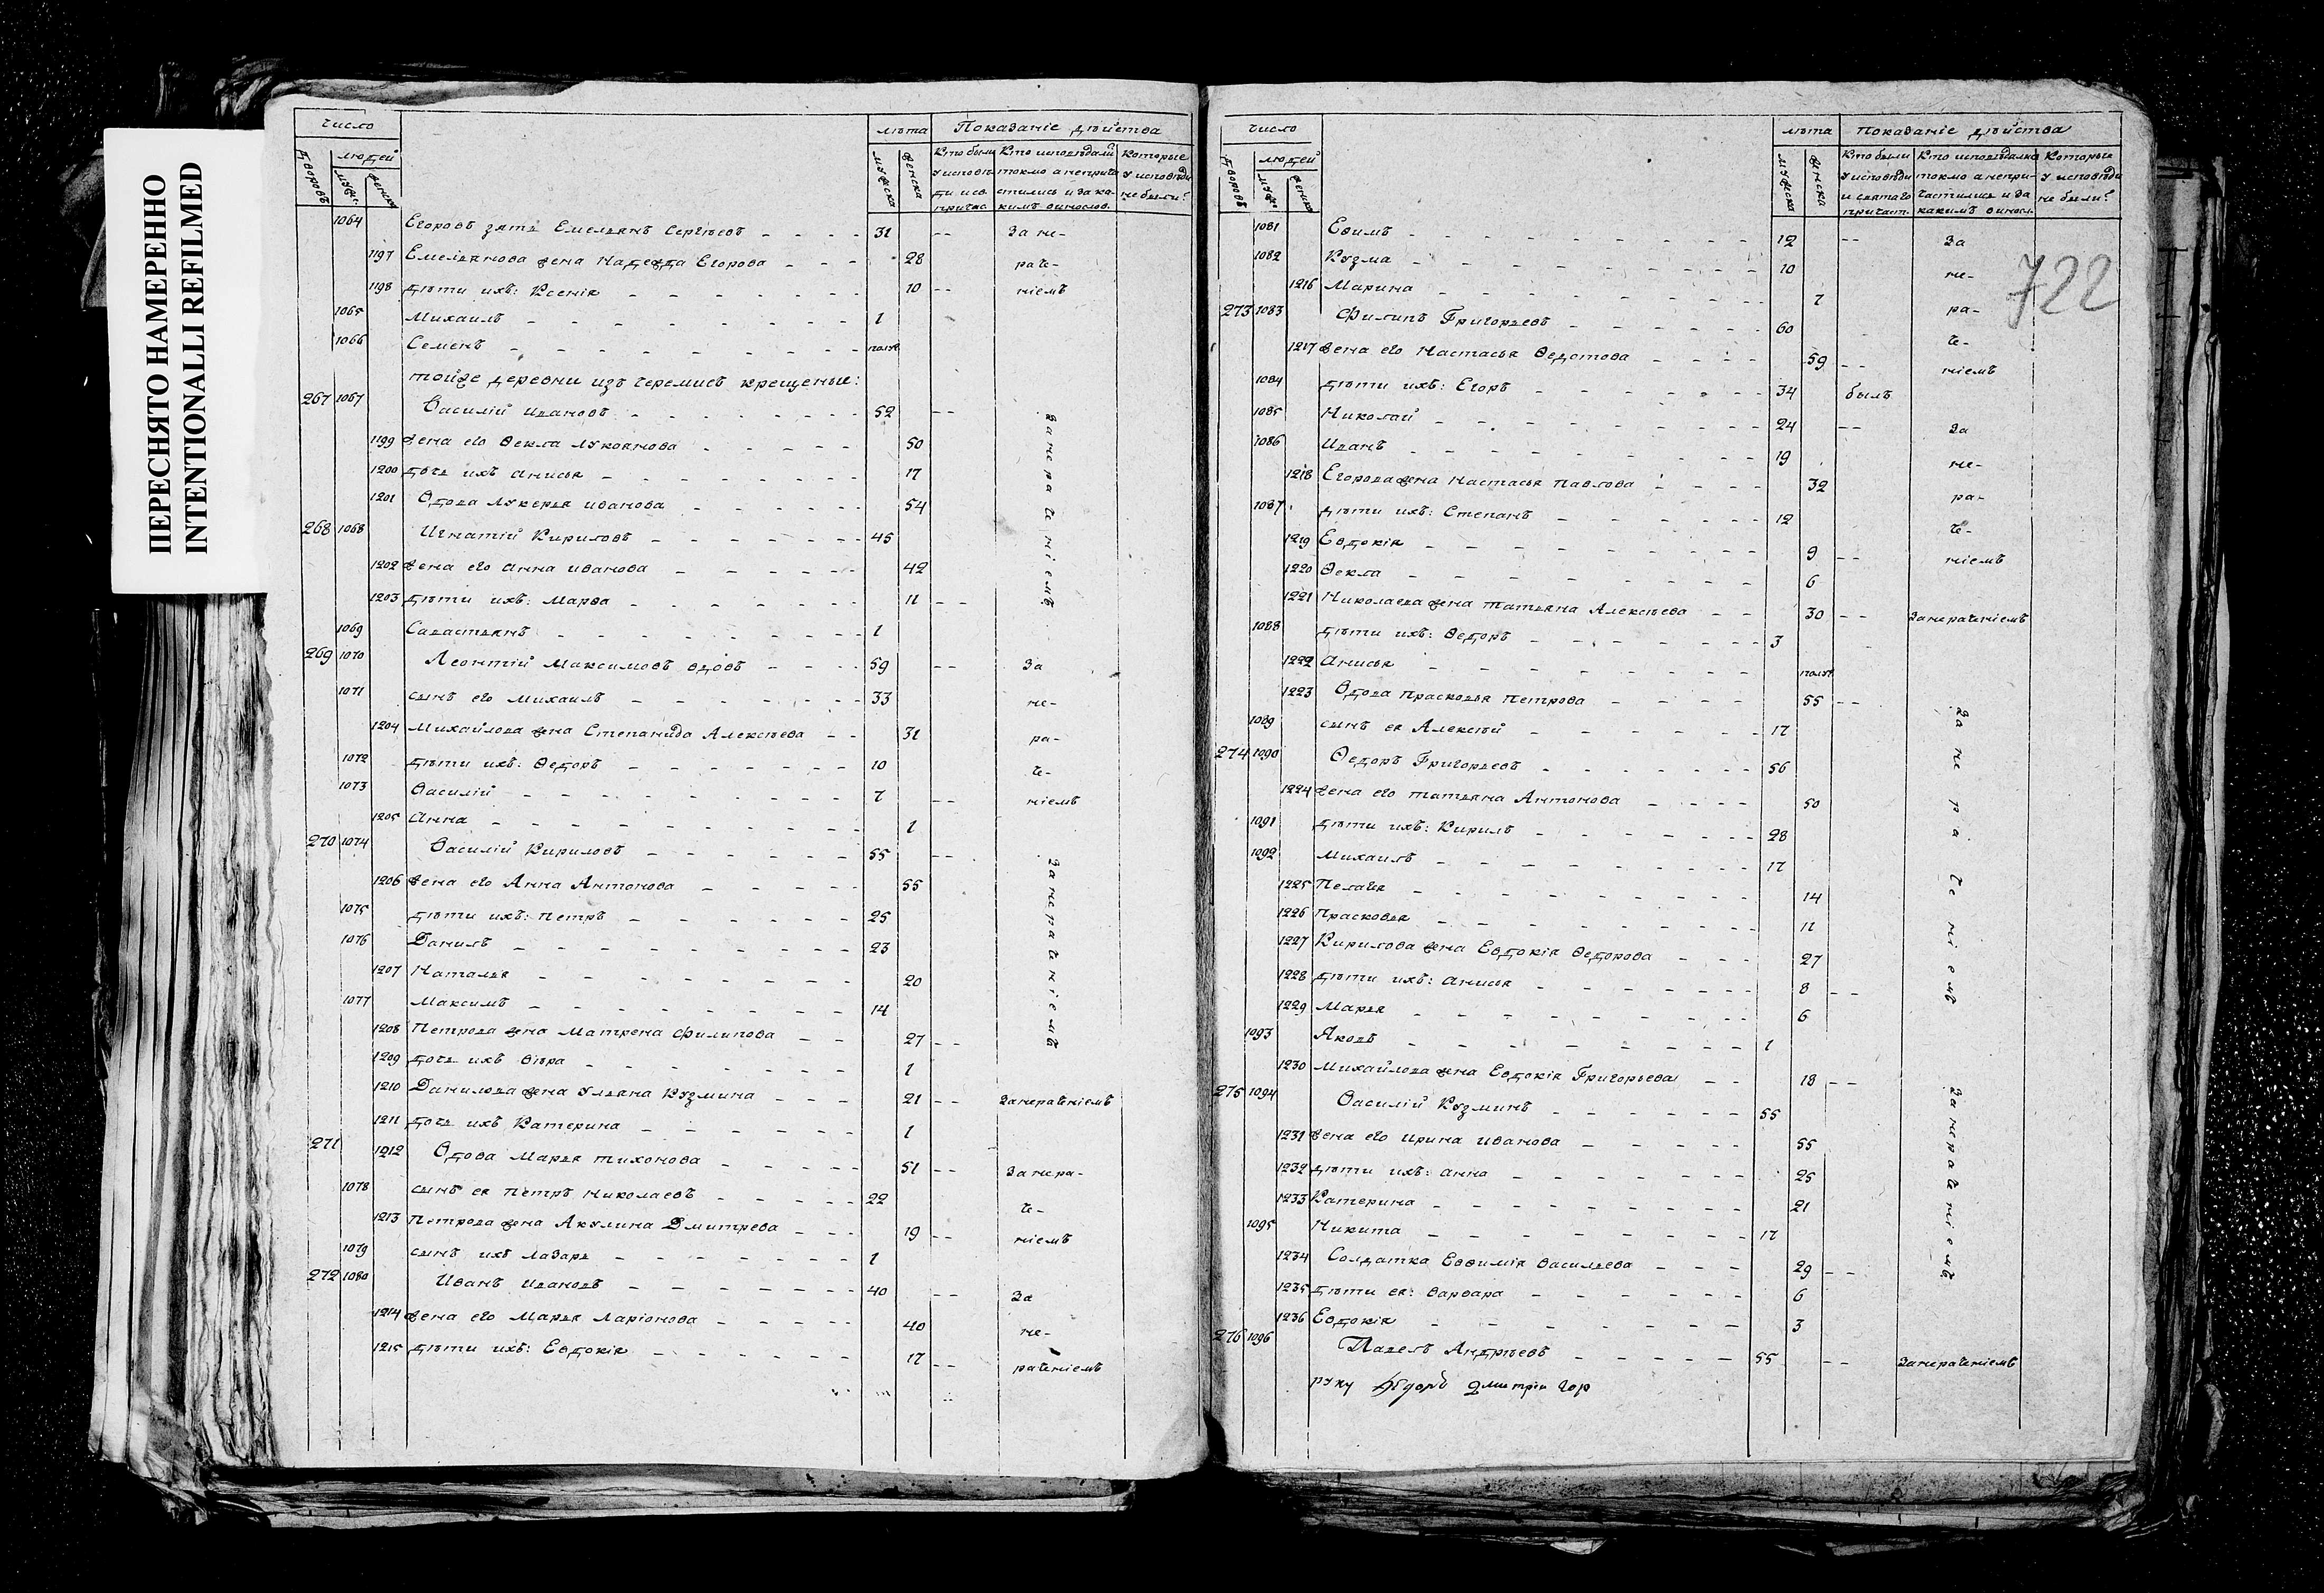 ПЕРЕСНЯТО НАМЕРЕННО
INTENTIONALLI REFILMED
число
лѣта Показаніе дѣйства
дворовъ
людей
муж:
женск
мужеска
женска
Кто были у исповѣди и св. причас.
Кто исповѣдали токмо а неприча стились и за ка- кимъ винослов.
Которые у исповѣди не были?
1064 Егоровъ зять Емельянъ Сергѣевъ 31 -- За не-
1197 Емельянова жена Надежда Егорова 28 раче-
1198 дѣти ихъ: Ксенія 10 -- ніемъ
1065 Михаилъ 1
1066 Семенъ полг
тойже деревни изъ черемисъ крещеные:
267 1067 Василій Ивановъ 52 -- За нераченіемъ
1199 жена его Ѳекла Лукоянова 50
1200 дочь ихъ Анисья 17
1201 Вдова Лукерья Иванова 54
268 1068 Игнатій Кириловъ 45
1202 жена его Анна Иванова 42
1203 дѣти ихъ: Марѳа 11 --
1069 Савастьянъ 1
269 1070 Леонтій Максимовъ вдовъ 59 -- За
1071 сынъ его Михаилъ 33 не-
1204 Михайлова жена Степанида Алексѣева 31 ра-
1072 дѣти ихъ: Ѳедоръ 10 че-
1073 Василій 7 -- ніемъ
1205 Анна 1
270 1074 Василій Кириловъ 55 -- За нераченіемъ
1206 жена его Анна Антонова 55
1075 дѣти ихъ: Петръ 25
1076 Данилъ 23
1207 Наталья 20
1077 Максимъ 14
1208 Петрова жена Матрена Филипова 27 --
1209 дочь ихъ Вѣра 1
1210 Данилова жена Ульяна Кузмина 21 -- Занераченіемъ
1211 дочь ихъ Катерина 1
271 1212 Вдова Марья Тихонова 51 -- За нера-
1078 сынъ ея Петръ Николаевъ 22 че-
1213 Петрова жена Акулина Дмитрева 19 -- ніемъ
1079 сынъ ихъ Лазарь 1
272 1080 Иванъ Ивановъ 40 -- За
1214 жена его Марья Ларіонова 40 не-
1215 дѣти ихъ: Евдокія 17 -- раченіемъ
число
лѣта Показаніе дѣйства
дворовъ
людей
муже
женск
мужеска
женска
Кто были у исповѣди и святаго причаст.
Кто исповѣдалис токмо а непри- частились и за какимъ винос.
Которые у исповѣди не были?
722
1081 Евимъ 12 -- За
1082 Кузма 10 не-
1216 Марина 7 ра-
273 1083 Филипъ Григорьевъ 60 че-
1217 жена его Настасья Ѳедотова 59 -- ніемъ
1084 дѣти ихъ: Егоръ 34 былъ
1085 Николай 24 -- За
1086 Иванъ 19 не-
1218 Егорова жена Настасья Павлова 32 ра-
1087 дѣти ихъ: Степанъ 12 че-
1219 Евдокія 9 -- ніемъ
1220 Ѳекла 6
1221 Николаева жена Татьяна Алексѣева 30 -- Занераченіемъ
1088 дѣти ихъ: Ѳедоръ 3
1222 Анисья полг
1223 Вдова Прасковья Петрова 55 -- За нераченіемъ
1089 сынъ ея Алексѣй 17
274 1090 Ѳедоръ Григорьевъ 56
1224 жена его Татьяна Антонова 50
1091 дѣти ихъ: Кирилъ 28
1092 Михаилъ 17
1225 Пелагея 14
1226 Прасковья 11
1227 Кирилова жена Евдокія Ѳедорова 27
1228 дѣти ихъ: Анисья 8 --
1229 Марья 6
1093 Яковъ 1
1230 Михайлова жена Евдокія Григорьева 18 --
275 1094 Василій Кузминъ 55 За нераченіемъ
1231 жена его Ирина Иванова 55
1232 дѣти ихъ: Анна 25
1233 Катерина 21
1095 Никита 17
1234 Солдатка Евѳимія Васильева 29 --
1235 дѣти ея: Варвара 6
1236 Евдокія 3
276 1096 Павелъ Андрѣевъ 55 -- Занераченіемъ
руку